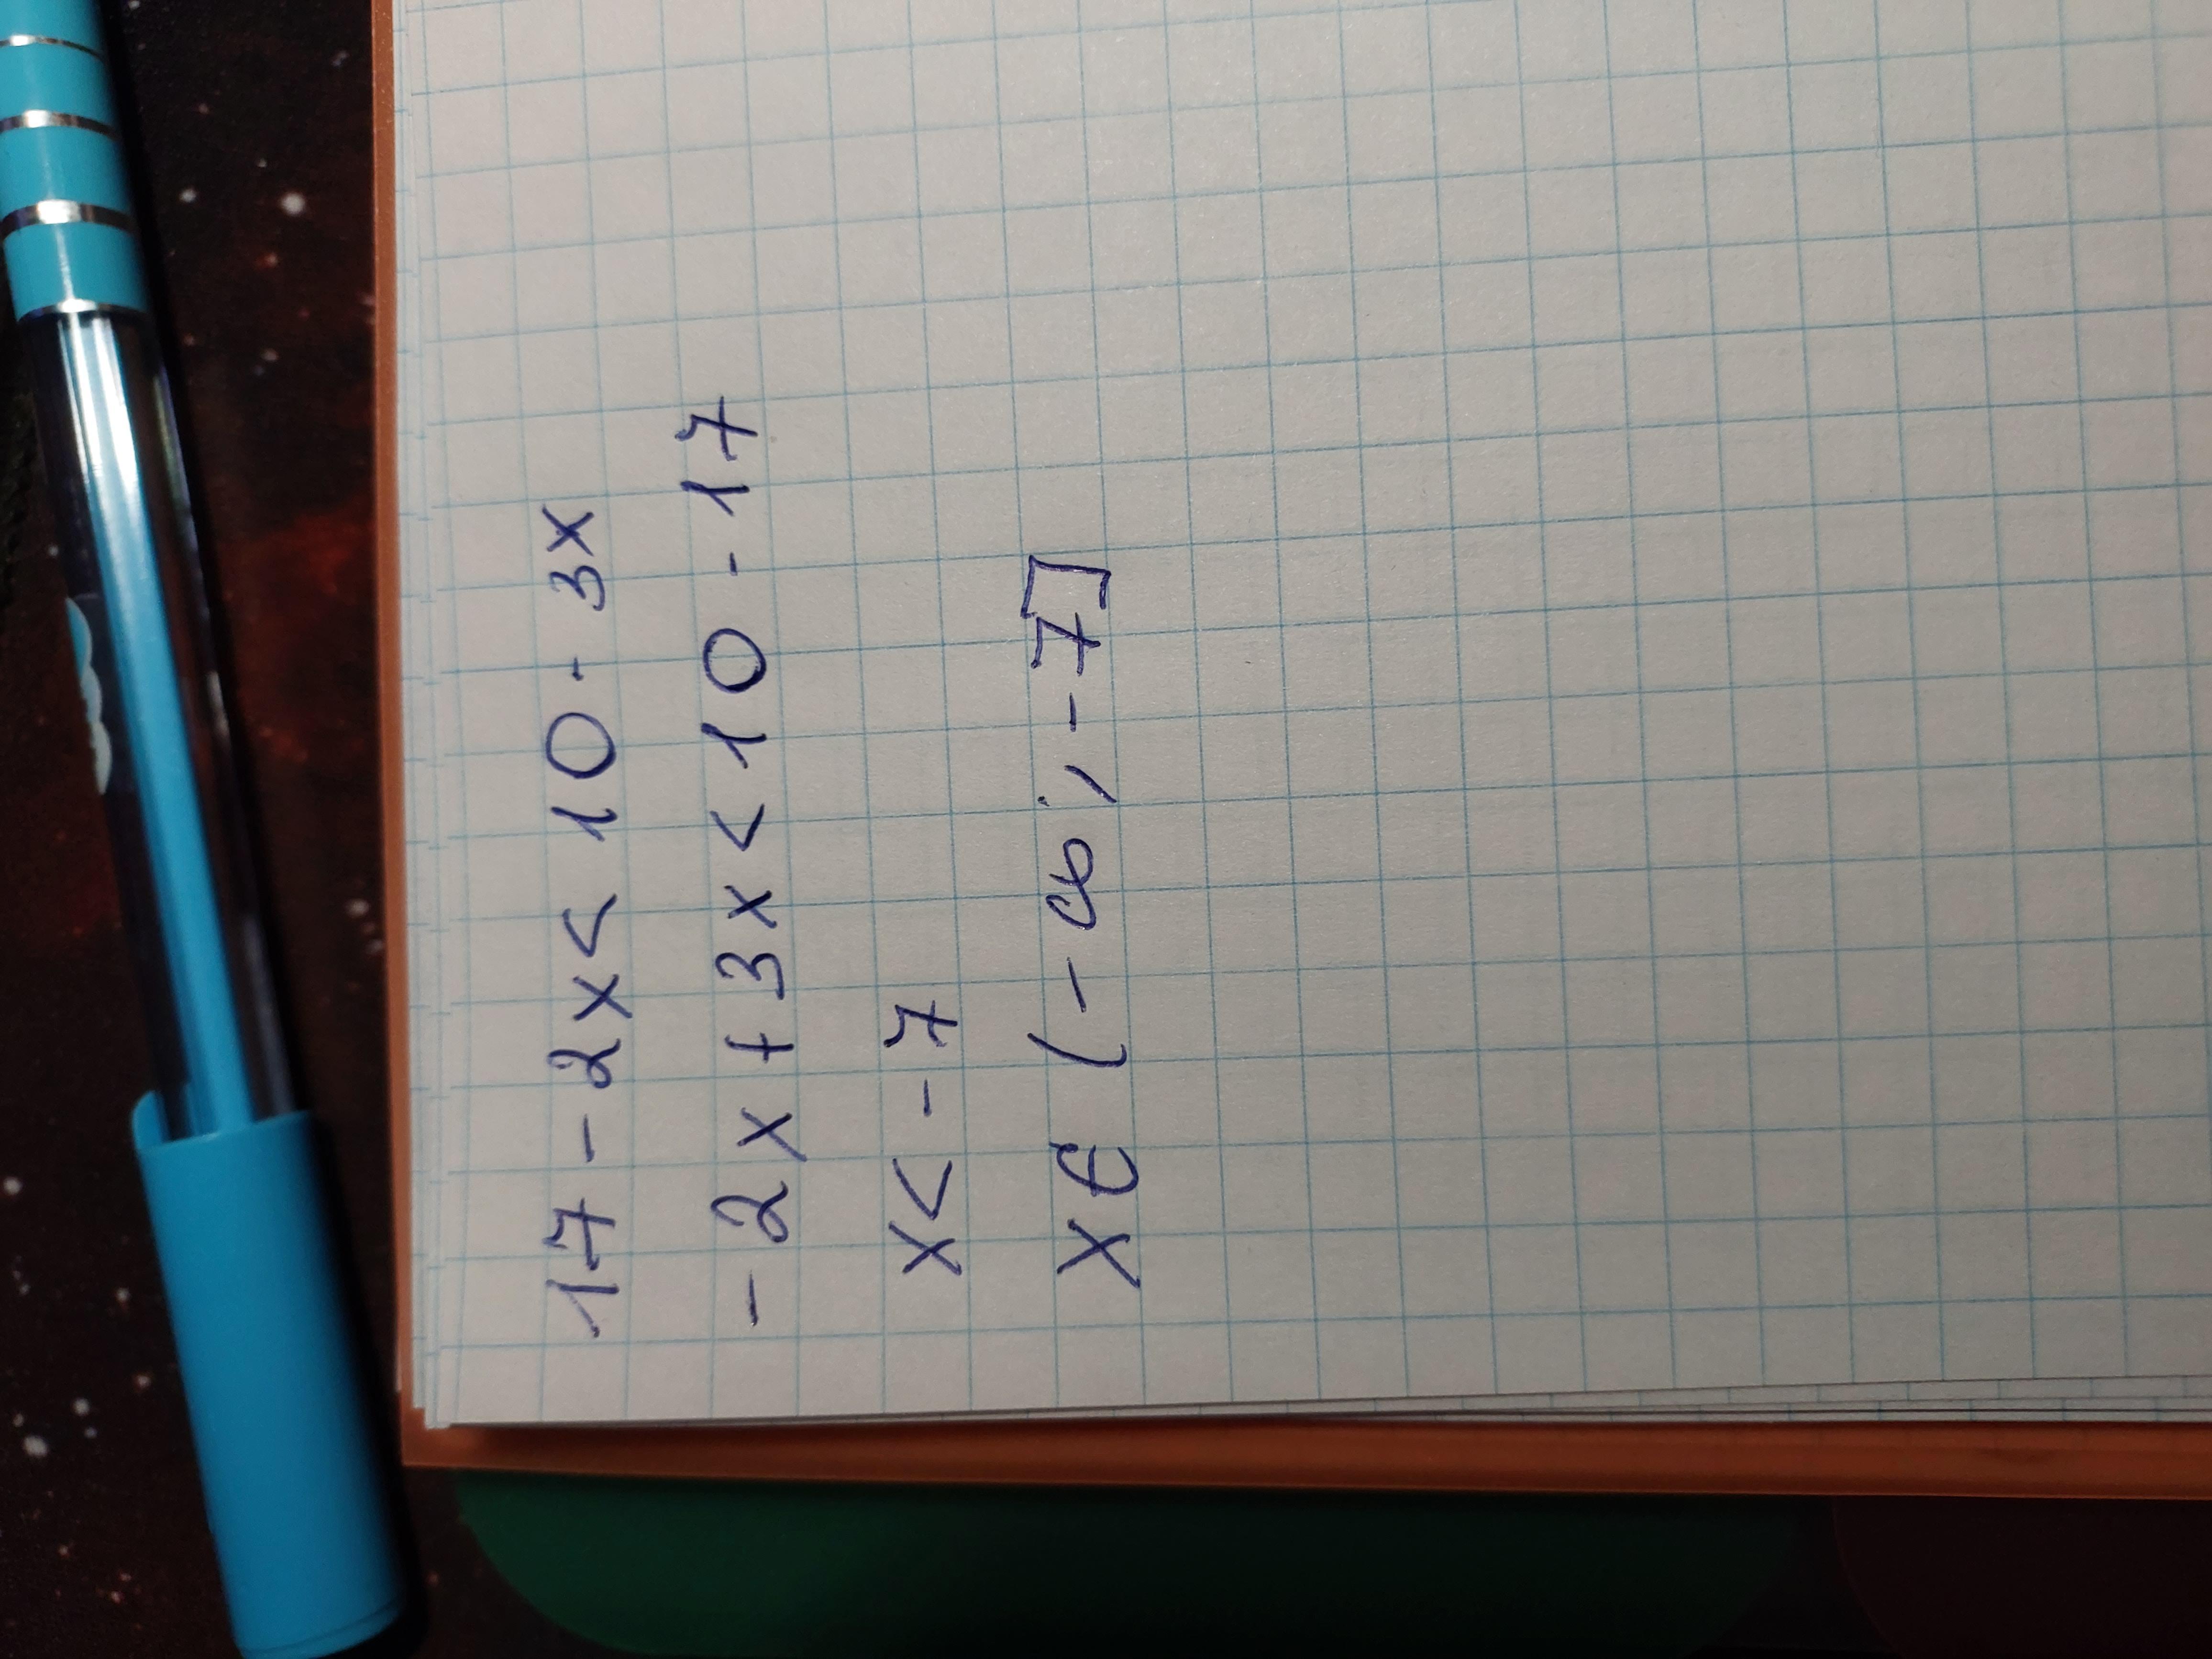 17 - 2x < 10 - 3x
- 2x + 3x < 10 - 17
x < - 7
x ∈ (- ∞; - 7]